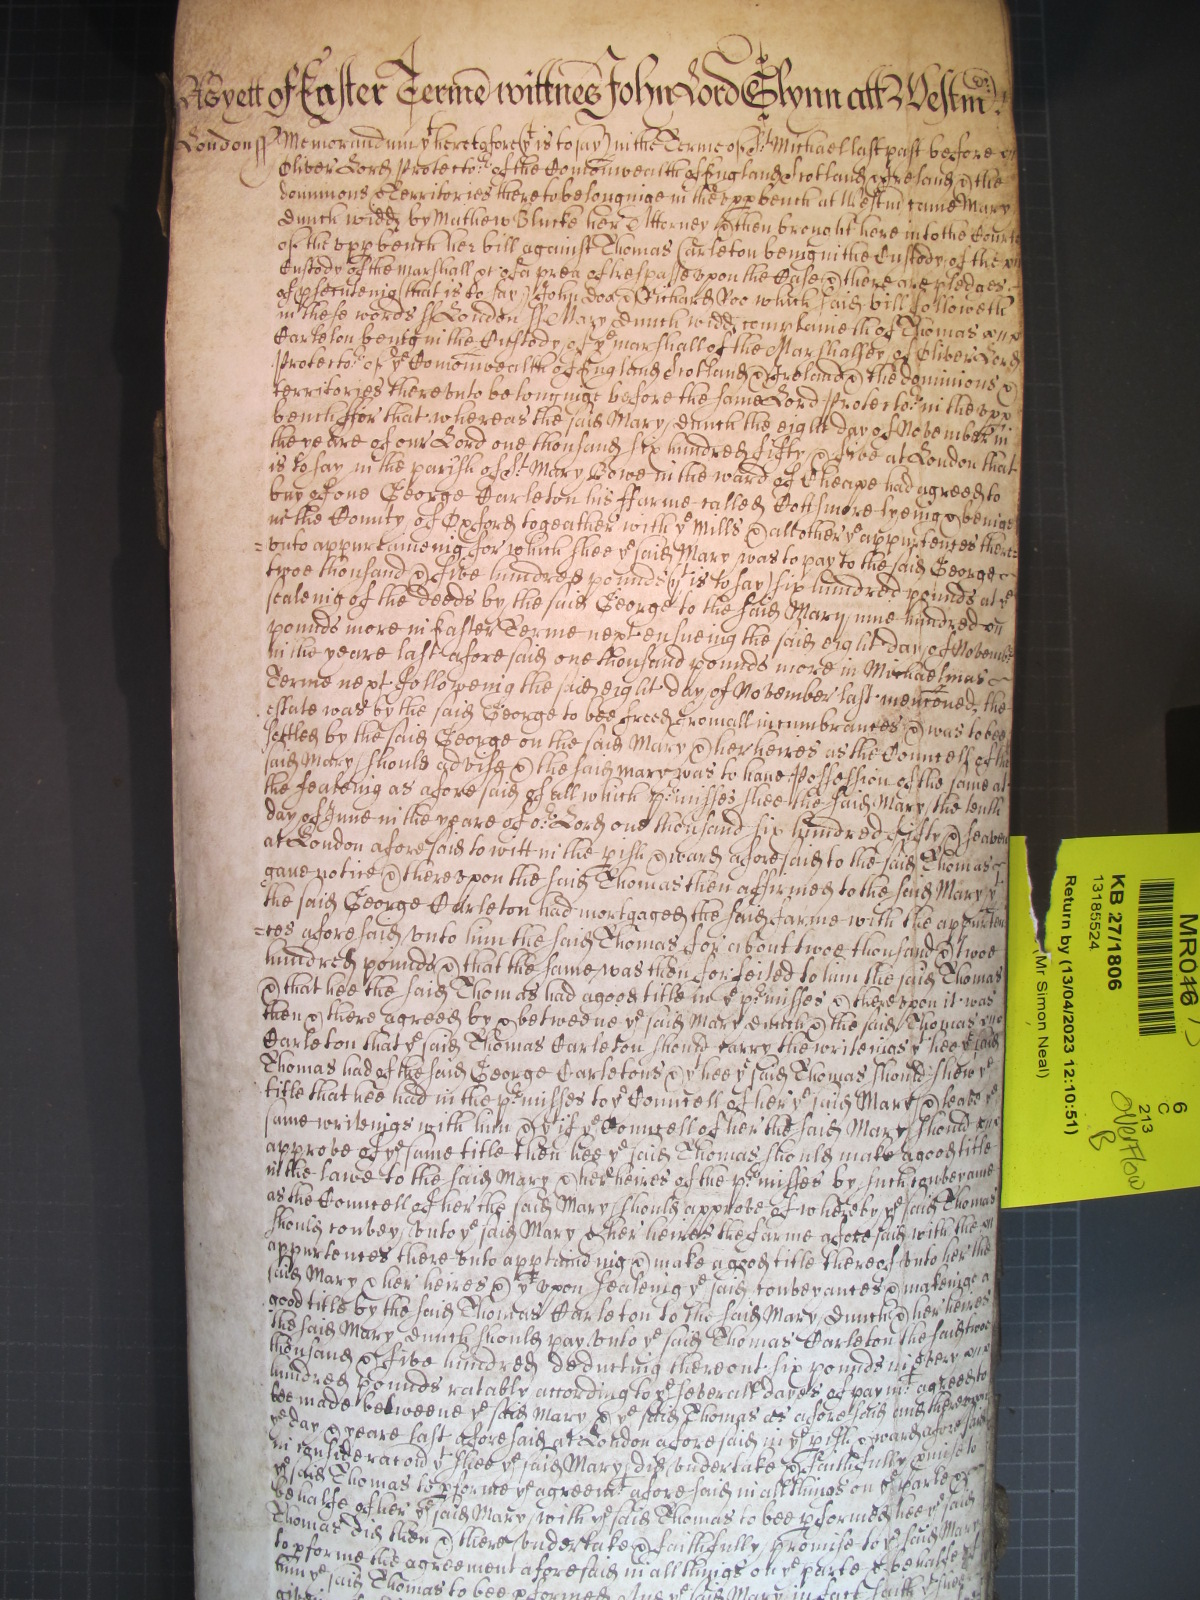 As yett of Easter Terme wittnes John Lord Glynn att Westm
London ss Memorandum yt heretofore (yt is to say) in the Terme of St Michael last past before
Oliver Lord Protector of the Comonwealth of England Scotland & Ireland & the
dominions & Territories thereto belonginge in the upp bench at Westm came Mary
Dunch widd by Mathew Blucke her Attorney & then brought here into the Court
of the upp bench her bill against Thomas Carleton being in the Custody of the
Custody of the Marshall &c of a plea of trespasse upon the Case & there are pledges
of psecuting (that is to say) John Doe & Richard Roo which said bill followeth
in these words ss London ss Mary Dunch widd complaineth of Thomas
Carleton being in the Custody of ye marshall of the Marshalsey of Oliver Lord
Protector of ye Comonwealth of England Scotland & Ireland & the dominions &
territories thereunto belonginge before the same Lord Protector in the upp
bench ffor that whereas the said Mary Dunch the eight day of November in
the yeare of our Lord one thousand six hundred fifty & five at London that
is to say in the parish of St Mary Bowe in the ward of Cheape had agreed to
buy of one George Carleton his ffarme called Cottsmore lyeing & being
in the County of Oxford togeather with ye Mills & all other ye appurtences there=
=unto appurtaineing for which shee ye said Mary was to pay to the said George
twoe thousand & five hundred pounds yt is to say six hundred pounds at ye
sealeing of the deeds by the said George to the said Mary nine hundred
pounds more in Easter Terme next ensueing the said eight day of Novemb
in the yeare last aforesaid one thousand pounds more in Michaelmas
Terme next followeing the said eight day of November last mencioned the
estate was by the said George to bee freed from all incumbrances & was to bee
settled by the said George on the said Mary & her heires as the Councell of the
said Mary should advise & the said Mary was to have Possession of the same at
the sealeing as aforesaid of all which pmisses shee the said Mary the tenth
day of June in the yeare of or Lord one thousand six hundred fifty & seaven
at London aforesaid to witt in the pish & ward aforesaid to the said Thomas
gave notice & thereupon the said Thomas then affirmed to the said Mary yt
the said George Carleton had mortgaged the said farme with the appurten
=ces aforesaid unto him the said Thomas for about twoe thousand & twoe
hundred pounds & that the same was then forfeited to him the said Thomas
& that hee the said Thomas had a good title in ye pmisses & thereupon it was
then & there agreed by & betweene ye said Mary Dunch & the said Thomas
Carleton that ye said Thomas Carleton should carry the writeings yt hee ye said
Thomas had of the said George Carletons & yt hee ye said Thomas should shew ye
title that hee had in the pmisses to ye Councell of her ye said Mary & leave ye
same writeings with him & yt if ye Councell of her the said Mary should
approve of ye same title then hee ye said Thomas should make a good title
in the lawe to the said Mary & her heires of the pmisses by such conveyance
as the Councell of her the said Mary should approve of whereby ye said Thomas
should convey unto ye said Mary & her heires the farme aforesaid with the
appurtences there unto apptaineing & make a good title thereof unto her the
said Mary & her heires & yt upon sealeing ye said conveyances & makeinge a
good title by the said Thomas Carleton to the said Mary Dunch & her heires
the said Mary Dunch should pay unto ye said Thomas Carleton the said twoe
thousand & five hundred deducting thereout six pounds in every
hundred pounds ratably according to ye severall dayes of paymt agreed to
bee made betweene ye said Mary & ye said Thomas as aforesaid and thereupon
ye day & yeare last aforesaid at London aforesaid in ye pish & ward aforesaid
in consideracion yt shee ye said Mary did undertake & faithfully pmise to
ye said Thomas to pforme ye agreemt aforesaid in all things on ye parte &
behalfe of her ye said Mary with ye said Thomas to bee pformed hee ye said
Thomas did then & there undertake & faithfully promise to ye said Mary
to pforme the agreement aforesaid in all things on ye parte & behalfe of
him ye said Thomas to bee pformed And ye said Mary in fact saith yt shee
MR046
KB 27/1806
13185524
Return by (13/04/2023 12:10:51)
(Mr Simon Neal)
6
C
213
Overflow
B